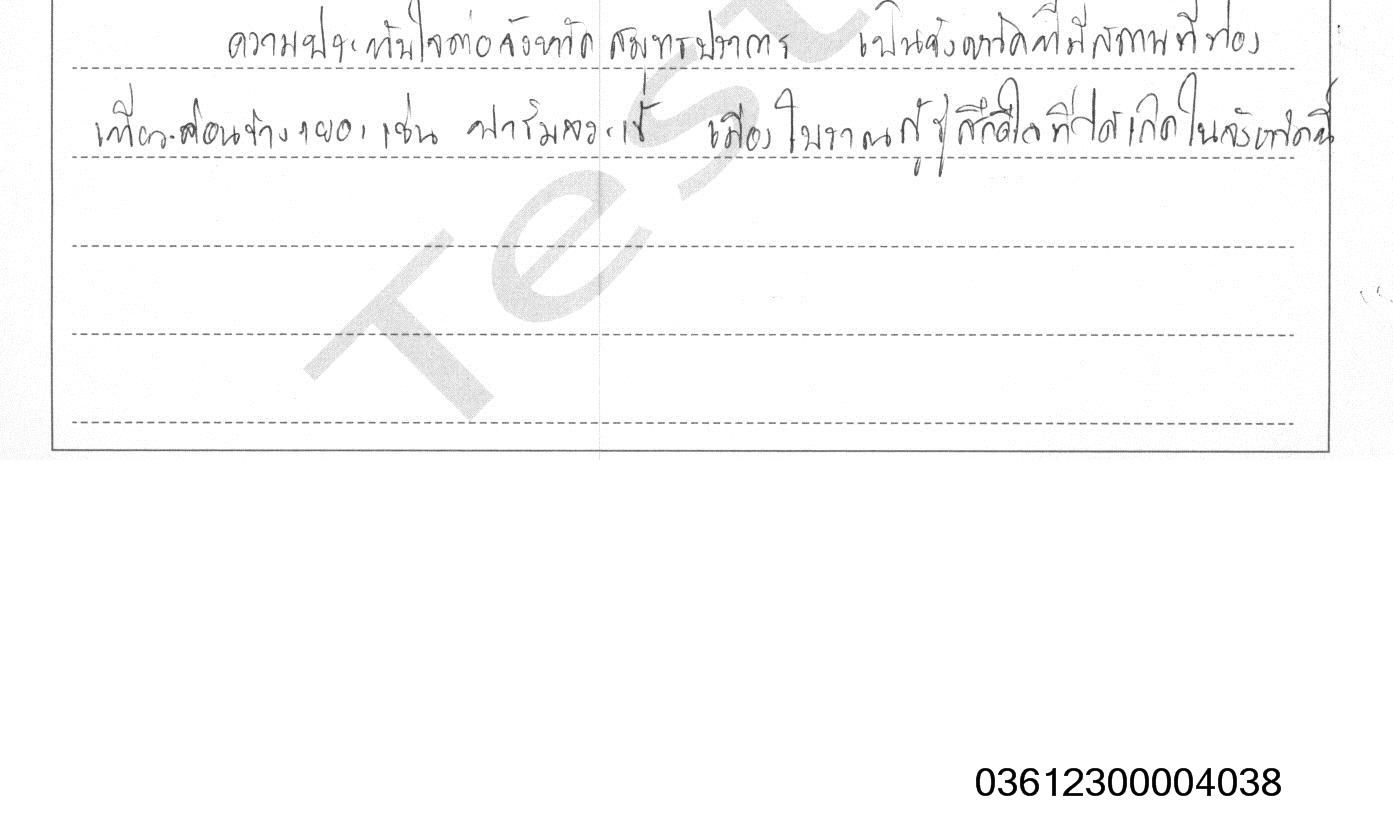 ความประทับใจต่อจังหวัด สมุทรปราการ เป็นจังหวัดที่มีสถานที่ท่อง
เที่ยวค่อนข้างเยอะ เช่น ฟาร์มจระเข้ เมืองโบราณ รู้สึกดีใจที่ได้เกิดในจังหวัดนี้
Test
03612300004038